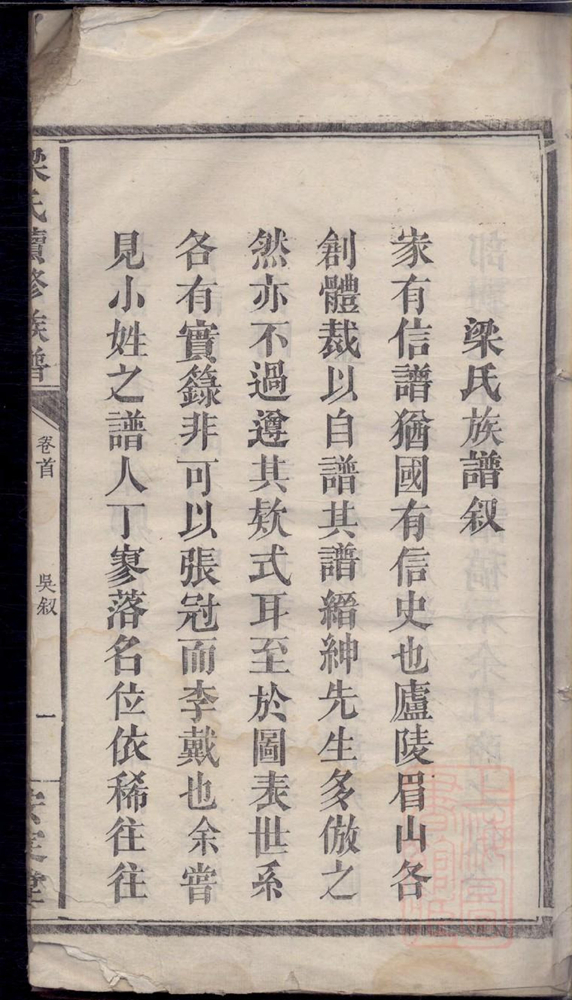 梁氏族譜叙
家有信譜猶國有信史也廬陵眉山各
創體裁以自譜其譜縉紳先生多倣之
然亦不過遵其欵式耳至於圖表世系
各有實錄非可以張冠而李戴也余嘗
見小姓之譜人丁寥落名位依稀往往
梁氏續修族譜
卷首
吳叙
一